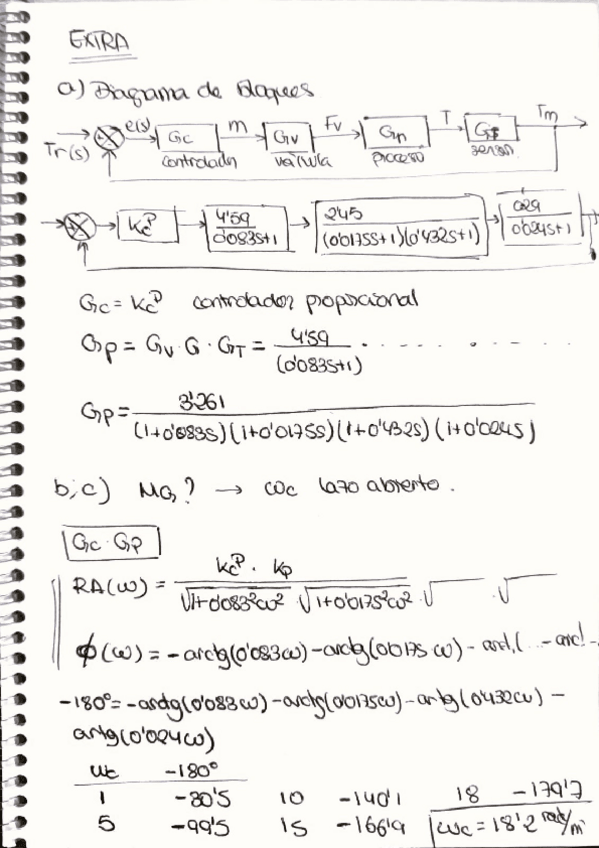 EXTRA
a) Diagrama de bloques
Tr(s) e(s) Gc m Gv Fv Gp T Gs Tm
controlador válvula proceso sensor
Kc^P 4'59/(0'083s+1) 2'45/((0'0175s+1)(0'432s+1)) 0'29/(0'024s+1)
Gc = Kc^P controlador proporcional
Gp = Gv · G · GT = 4'59/(0'083s+1) · - - - - - -
Gp = 3'261/((1+0'083s)(1+0'0175s)(1+0'432s)(1+0'024s))
b, c) MG? → ωc lazo abierto.
Gc · Gp
RA(ω) = Kc^P · Kp/(√(1+0'083²ω²) · √(1+0'0175²ω²) · √ · √)
ϕ(ω) = -arctg(0'083ω) - arctg(0'0175 ω) - arct( ... - arc! -
-180° = -arctg(0'083ω) - arctg(0'0175ω) - artg(0'432ω) -
artg(0'024ω)
ωc -180°
1 -30'5 10 -140'1 18 -179'7
5 -99'5 15 -166'9 ωc = 18'2 rad/m